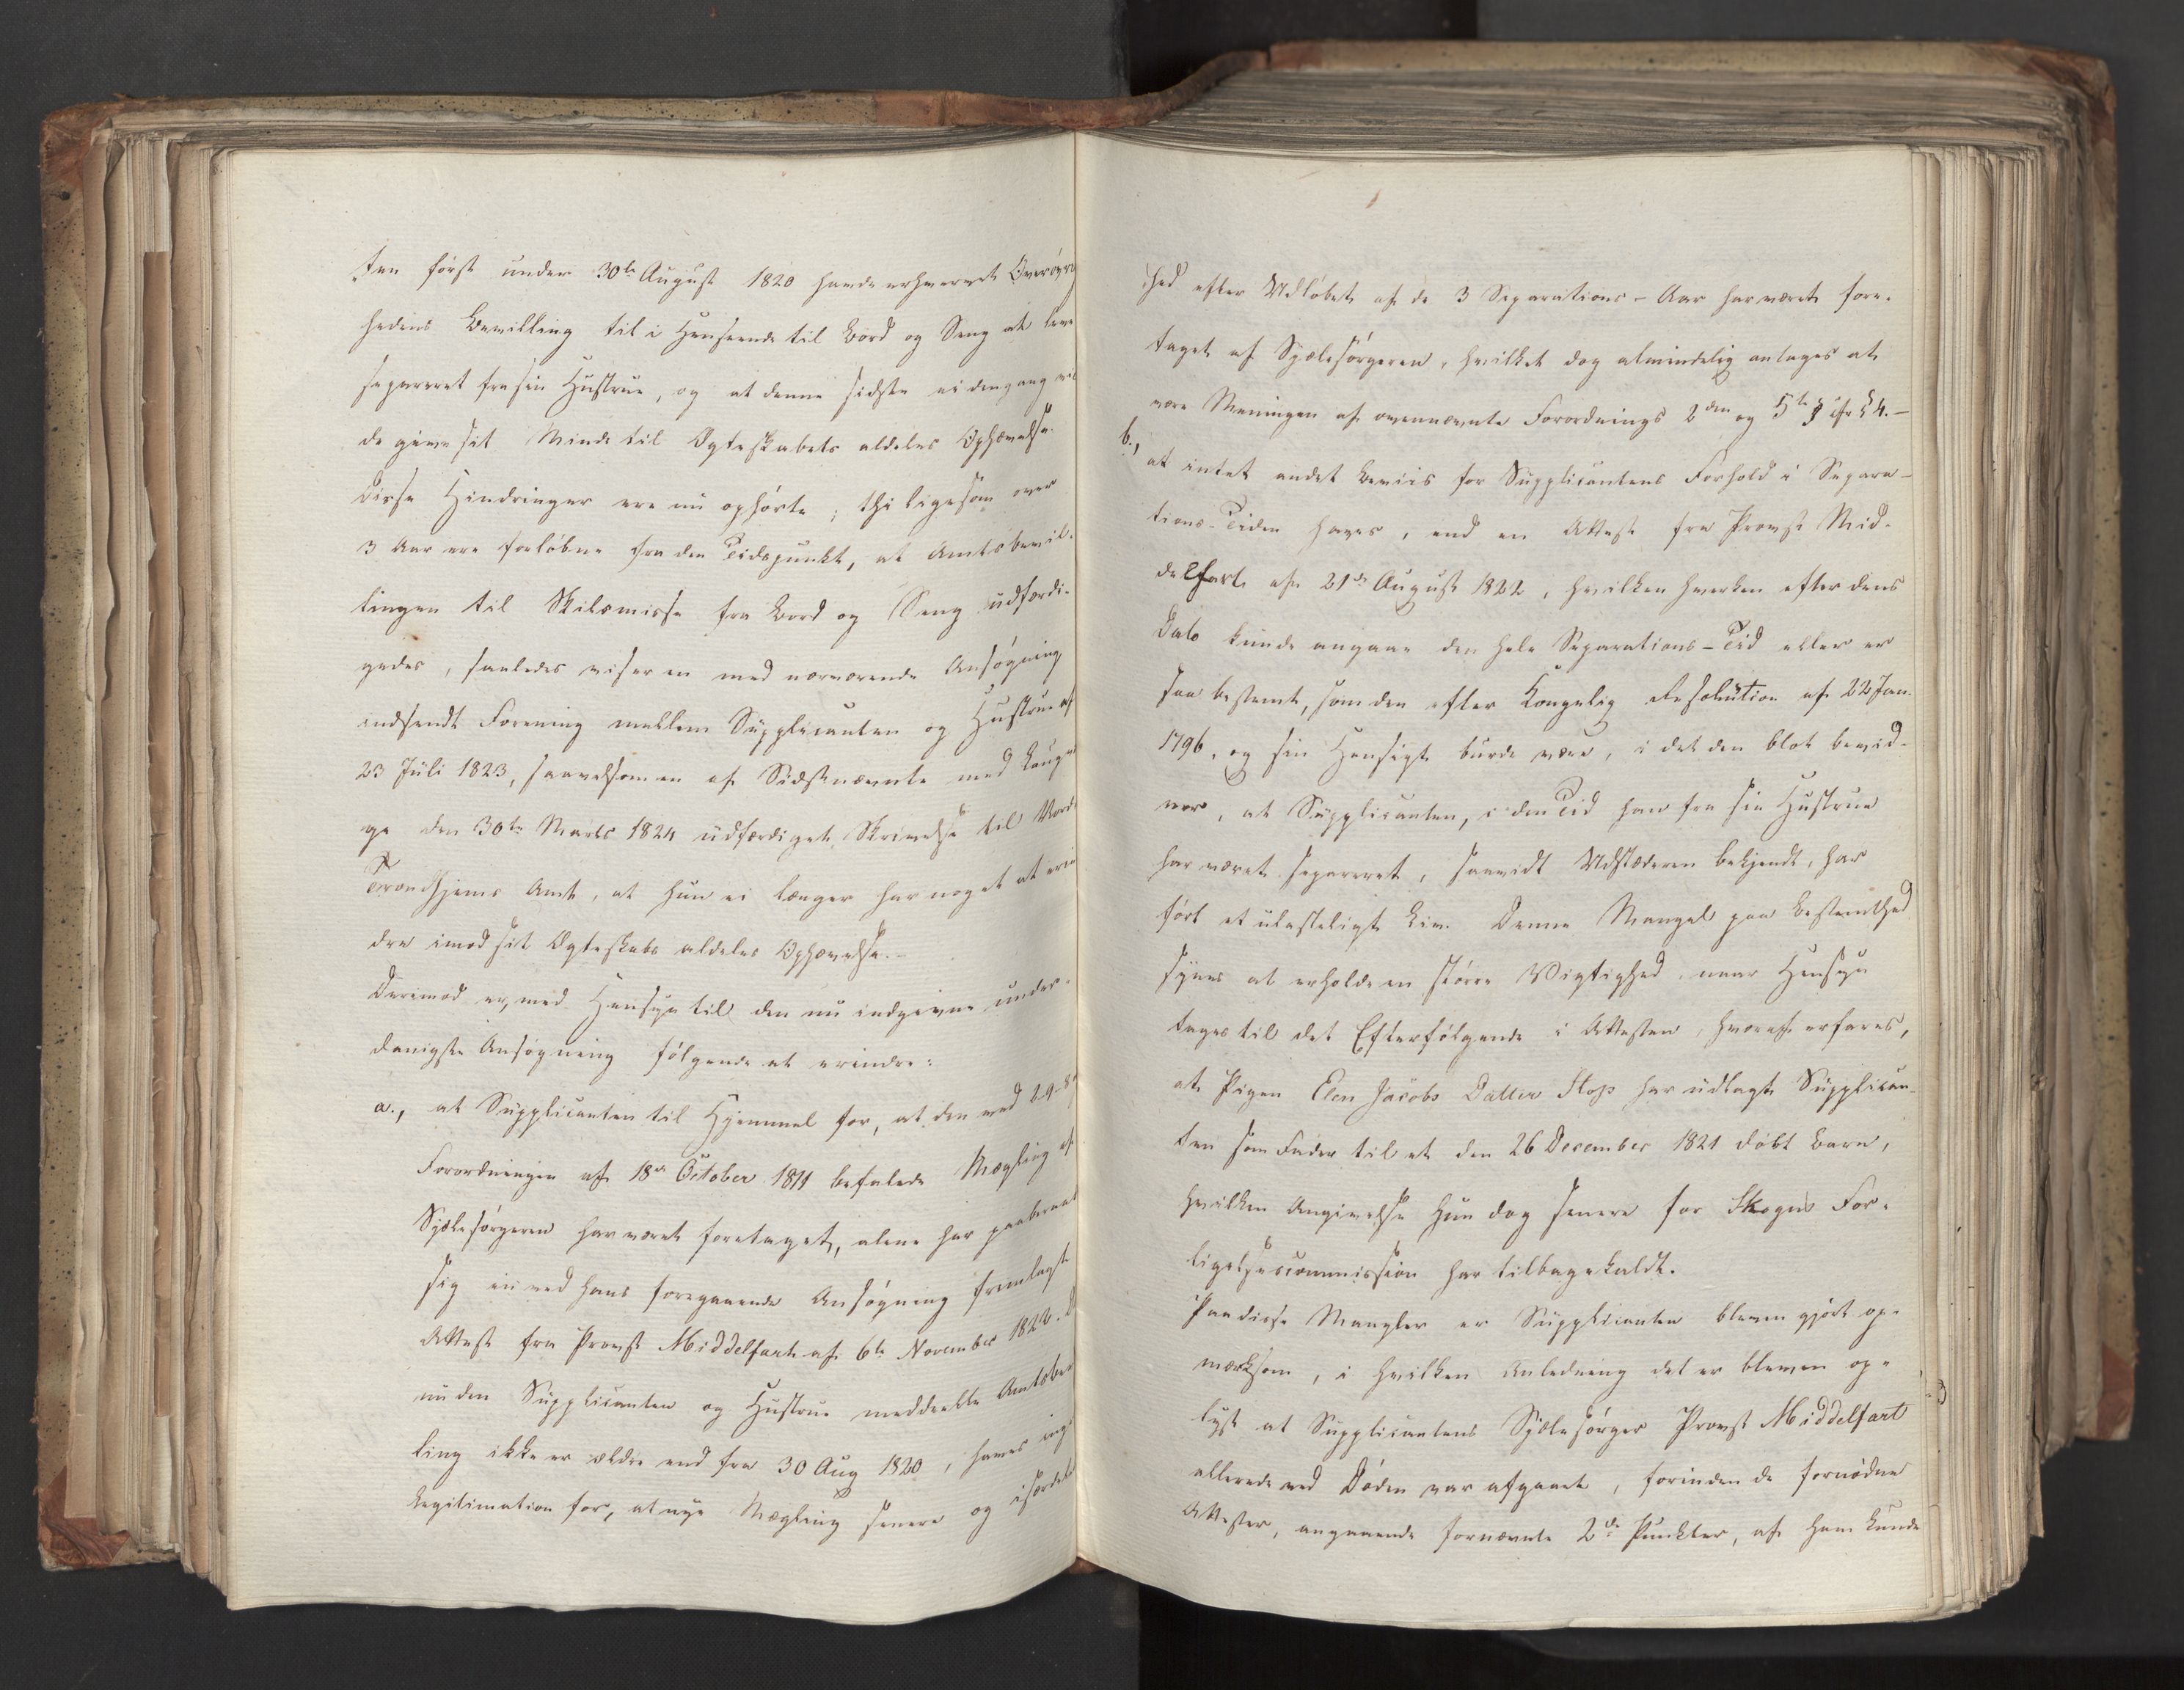 ten først under 30te August 1820 havde erhvervet Overøvrig
hedens Bevilling til i Henseende til Bord og Seng at leve
separeret fra sin Hustrue, og at denne sidste ei dengang vil
de give sit Minde til Ægteskabets aldeles Ophævelse.
Disse Hindringer ere nu ophørte; thi ligesom over
3 Aar ere forløbne fra den Tidspunkt, at Amtsbevil-
lingen til Skilsmisse fra Bord og Seng udfærdi-
gedes, saaledes viser en med nærværende Ansøgning
indsendt Forening mellem Supplicanten og Hustrue af
23 Juli 1823, saavelsom en af Sidstnævnte med Laug
ge den 30te Marts 1824 udfærdiget Skrivelse til Nord
Trondhjems Amt, at hun ei længer har noget at erin
dre imod sit Ægteskabs aldeles Ophævelse.-
Derimod er, med Hensyn til den nu indgivne under-
danigste Ansøgning følgende at erindre:
a., at Supplicanten til Hjemmel for, at den ved 2-9-§
Forordningen af 18de October 1811 befalede Mægling af
Sjælesørgeren har været foretaget, alene har paaberaabt
sig en ved hans foregaaende Ansøgning fremlagt
Attest fra Provst Middelfart af 6te November 1822. D
nu den Supplicanten og Hustrue meddeelte Amtsbevil
ling ikke er ældre end fra 30 Aug 1820, haves ing
Legitimation for, at nye Mægling senere og isærdeles
hed efter Udløbet af de 3 Separations-Aar har været fore-
taget af Sjælesørgeren, hvilket dog almindelig antages at
være Meningen af ovennævnte Forordnings 2den og 5te § cfr § 4.-
b., at intet andet Beviis for Supplicantens Forhold i Separa-
tions-Tiden haves, end en Attest fra Provst Mid-
delfart af 21de August 1822, hvilken hverken efter dens
Dato kunde angaae den hele Separations-Tid eller er
saa bestemt, som den efter Kongelig Resolution af 22 Jan.
1796, og sin Hensigt burde være, i det den blot bevid-
ner, at Supplicanten, i den Tid han fra sin Hustrue
har været separeret, saavidt Udstæderen bekjendt, har
ført et ulasteligt Liv. Denne Mangel paa Bestemthed
synes at erholde en større Vigtighed, naar Hensyn
tages til det Efterfølgende i Attesten, hvoraf erfares,
at Pigen Elen Jacobs Datter Stop har udlagt Supplican-
ten som Fader til et den 26 December 1821 døbt Barn,
hvilken Angivelse hun dog senere for Skogns For-
ligelsescommission har tilbagekaldt.
Paa disse Mangler er Supplicanten bleven gjort op-
mærksom, i hvilken Anledning det er bleven op-
lyst at Supplicantens Sjælesørger Provst Middelfart
allerede ved Døden var afgaaet, forinden de fornødne
Attester, angaaende fornævnte 2de Punkter, af ham kunde